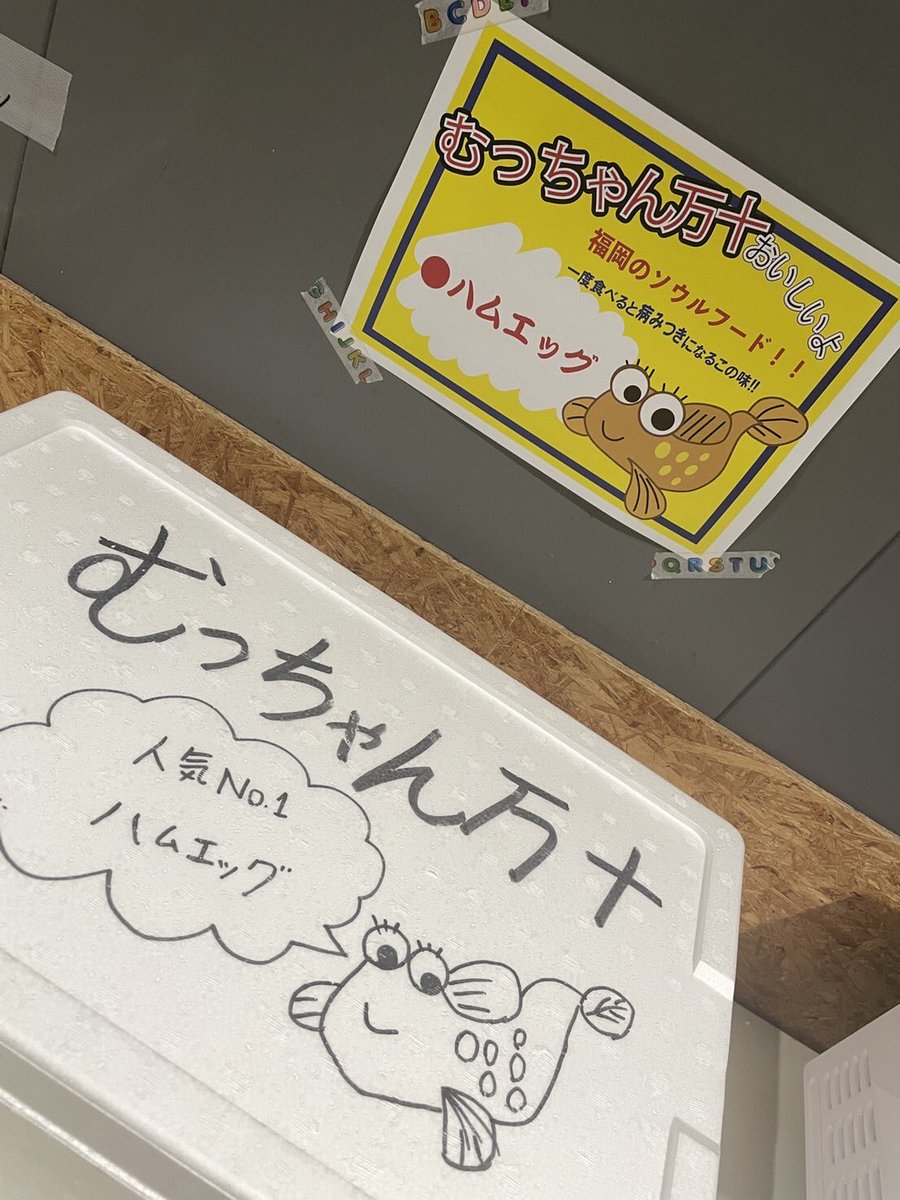 BCDEF
むっちゃん万十
おいしいよ
福岡のソウルフード!!
一度食べると病みつきになるこの味!!
●ハムエッグ
GHIJKL
QRSTU
むっちゃん万十
人気No.1
ハムエッグ